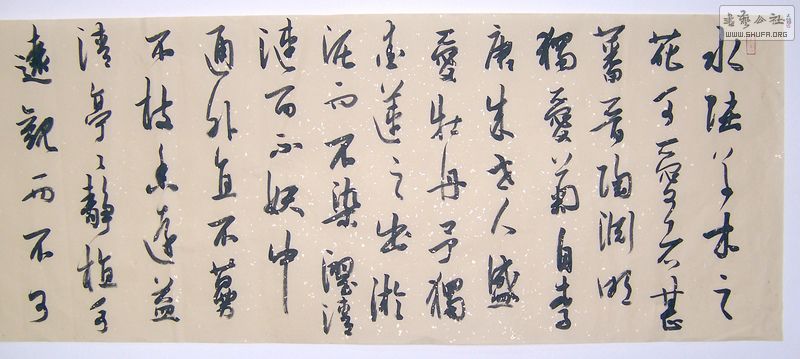 水陸草木之
花可愛者甚
蕃晉陶淵明
獨愛菊自李
唐来世人盛
愛牡丹予獨
愛蓮之出淤
泥而不染濯清
漣而不妖中
通外直不蔓
不枝香遠益
清亭〻静植可
遠觀而不可
书艺公社
WWW.SHUFA.ORG